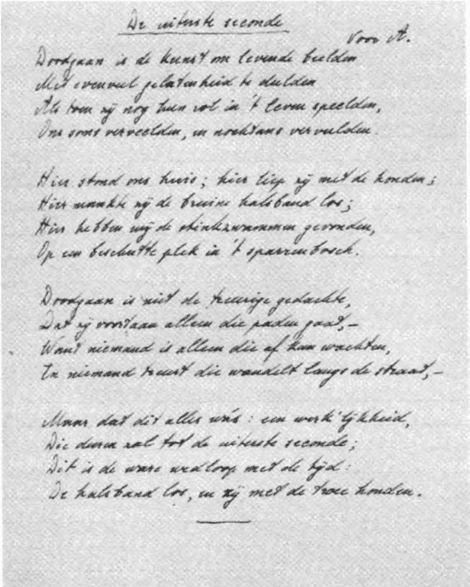 De uiterste seconde
Voor A.
Doodgaan is de kunst om levende beelden
Met evenveel gelatenheid te dulden
Als toen zij nog hun rol in 't leven speelden,
Ons soms verveelden, en nochtans vervulden.
Hier stond ons huis; hier liep zij met de honden;
Hier maakte zij de bruine halsband los;
Hier hebben wij de stinkzwammen gevonden,
Op een beschutte plek in 't sparrenbosch.
Doodgaan is niet de treurige gedachte,
Dat zij voortaan alleen die paden gaat,–
Want niemand is alleen die af kan wachten,
En niemand treurt die wandelt langs de straat,–
Maar dat dit alles wás: een werk'lijkheid,
Die duren zal tot de uiterste seconde;
Dit is de ware wedloop met de tijd:
De halsband los, en zij met de twee honden.